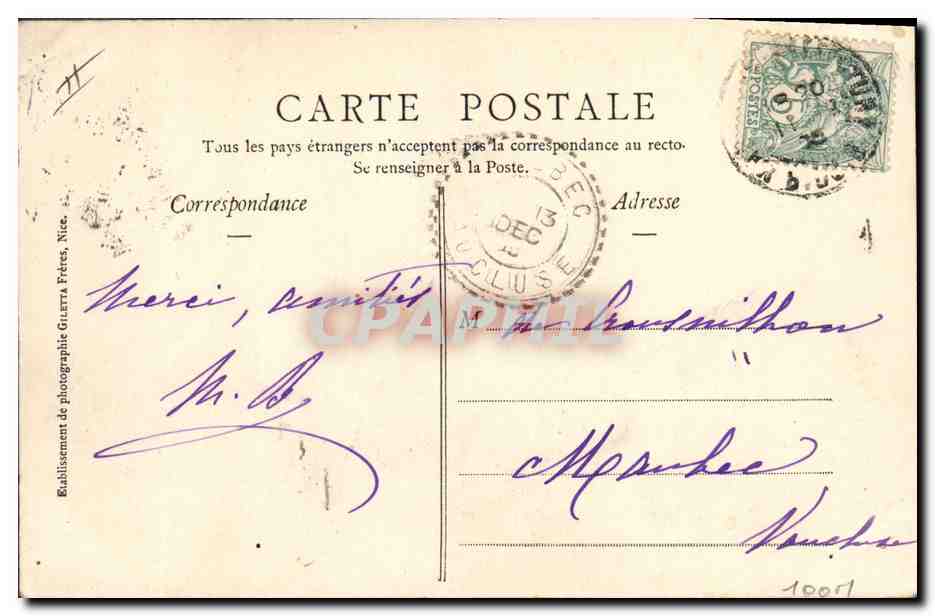 CARTE POSTALE
Tous les pays étrangers n'acceptent pas la correspondance au recto.
Se renseigner à la Poste.
Correspondance
Adresse
Etablissement de photographie GILETTA Frères, Nice.
BEC
13
DEC
VAUCLUSE
POSTES
5
20
Merci, amitiés
M. B
M
" 
Maubec
Vaucluse
CPAPHIL